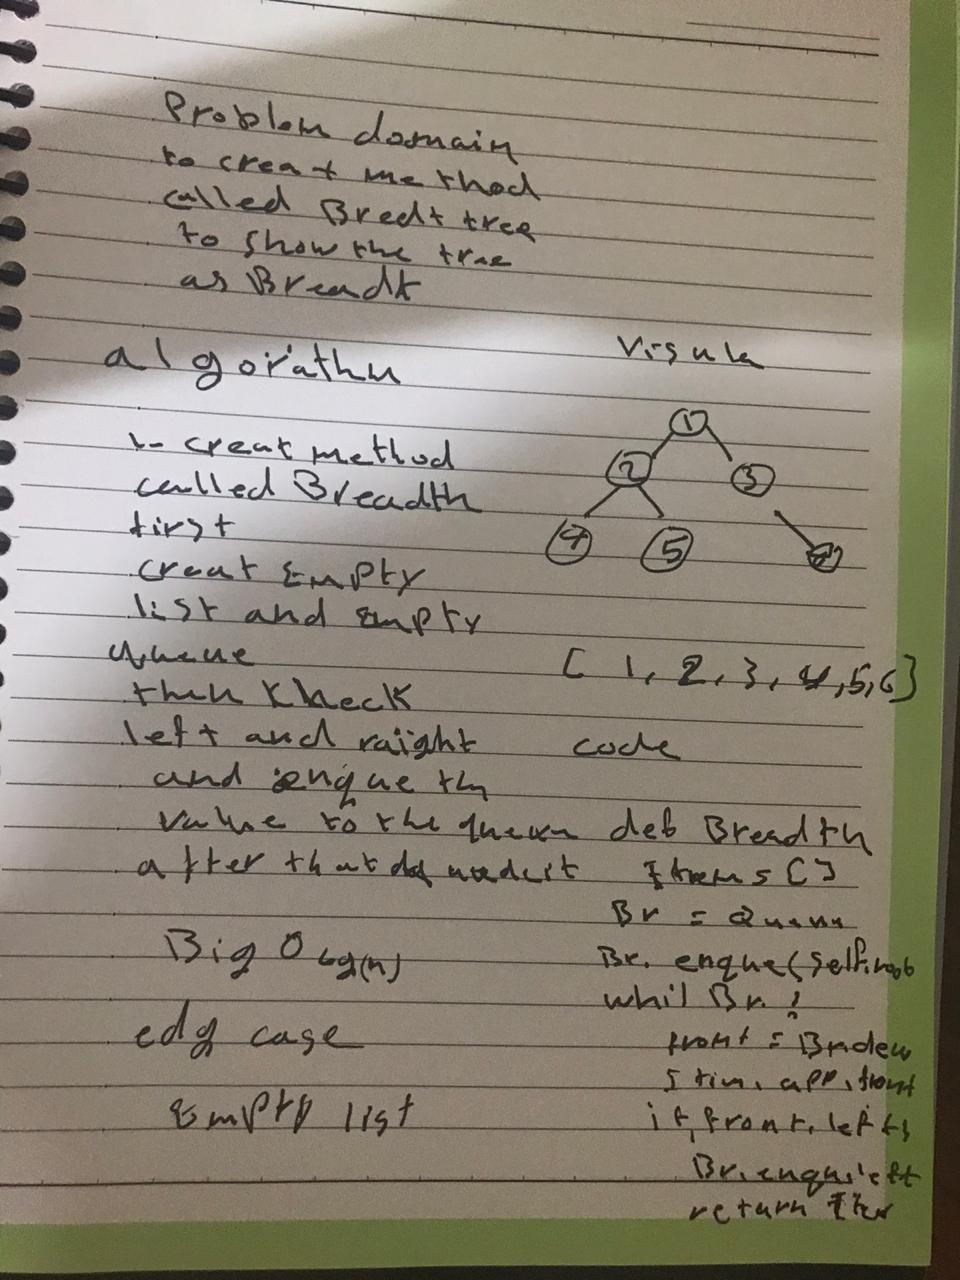 Problem domain
to creat method
called Bredt tree
to show the tree
as Breadt
algorathm
1- creat method
called Breadth
first
creat Empty
list and Empty
queue
then kheck
left and raight
and enque th
value to the
after that
Big O Log(n)
edg case
Empty list
Visula
1
2
3
4
5
[ 1, 2, 3, 4, 5, 6 ]
code
def Breadth
Items []
Br =
Br. enque (self.roo
whil Br. :
front = Br.dew
app. front
if front. left
Br. enqu left
return Iter